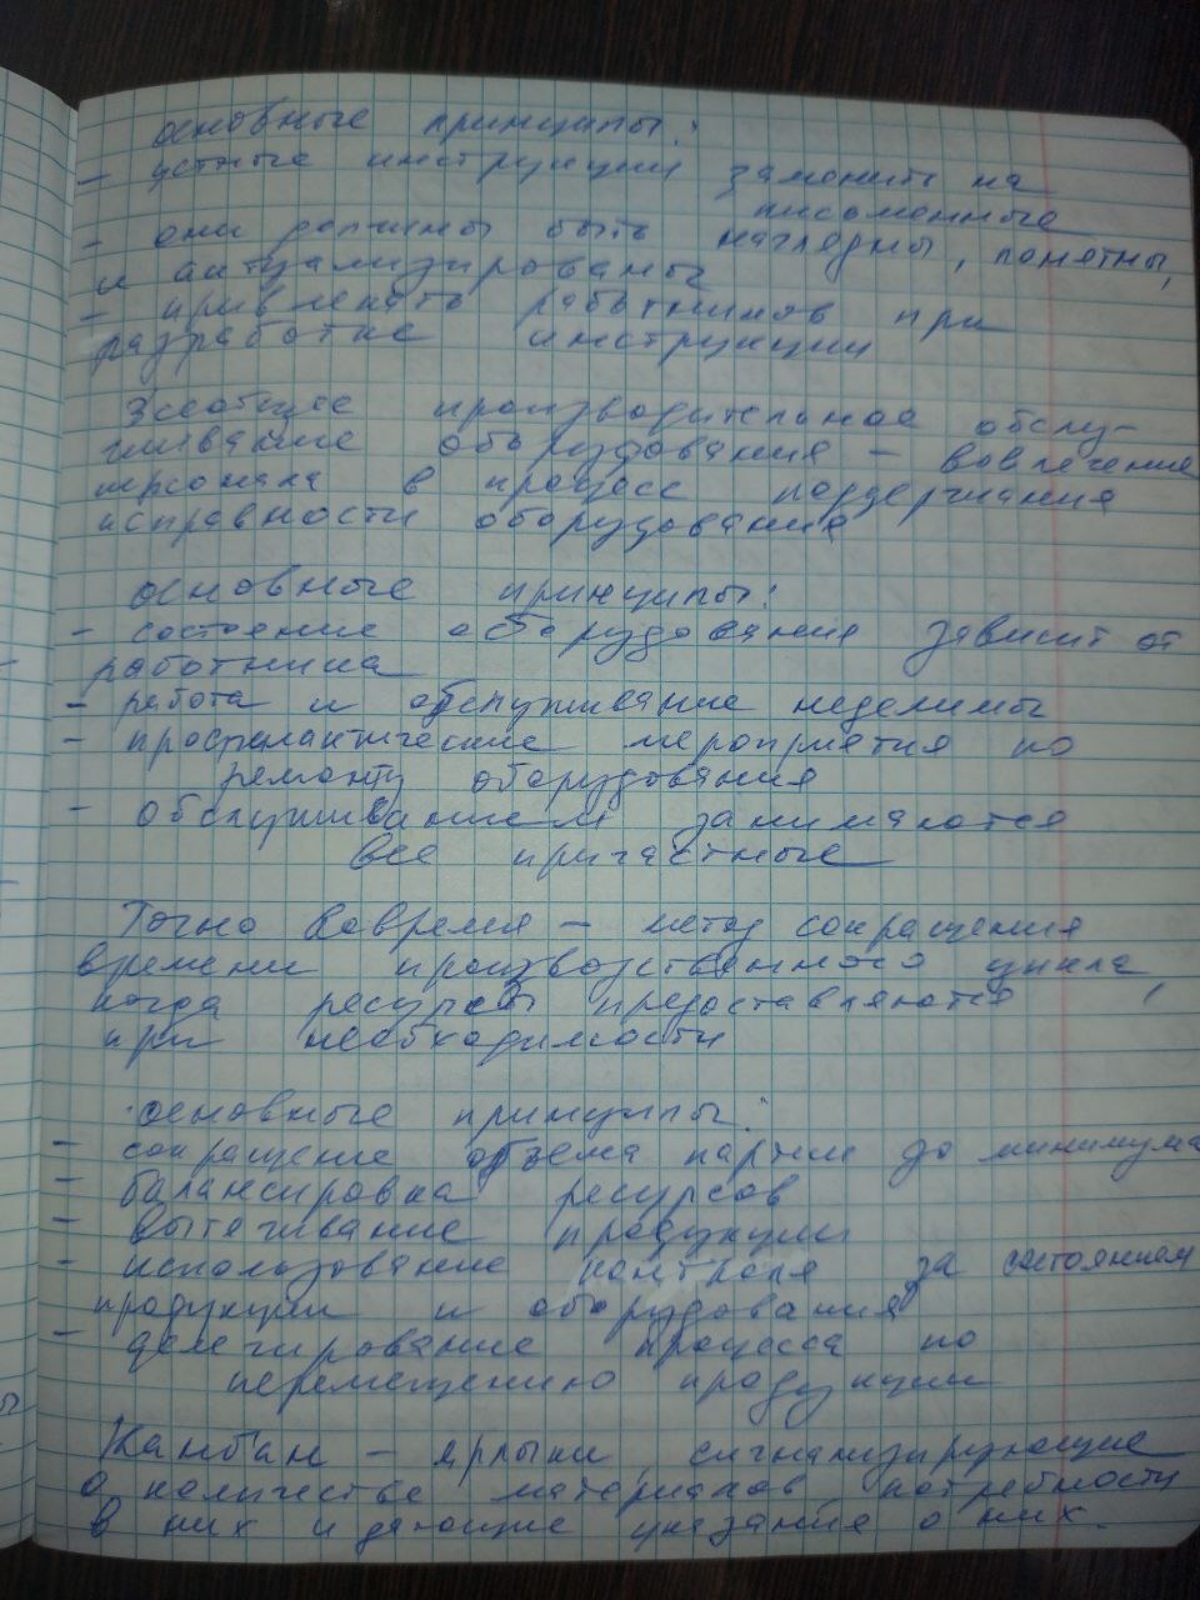 основные принципы:
- устные инструкции заменить на
письменные
- они должны быть наглядны, понятны,
и актуализированы
- привлекать работников при
разработке инструкции
Всеобщее производительное обслу-
живание оборудования - вовлечение
персонала в процесс поддержания
исправности оборудования
основные принципы:
- состояние оборудования зависит от
работника
- работа и обслуживание неделимы
- профилактические мероприятия по
ремонту оборудования
- обслуживанием занимаются
все причастные
Точно вовремя - метод сокращения
времени производственного цикла,
когда ресурсы предоставляются
при необходимости
основные принципы:
- сокращение объема партии до минимума
- балансировка ресурсов
- вытягивание продукции
- использование контроля за состоянием
продукции и оборудования
- делегирование процесса по
перемещению продукции
Канбан - ярлыки, сигнализирующие
о количестве материалов потребности
в них и дающие указания о них.